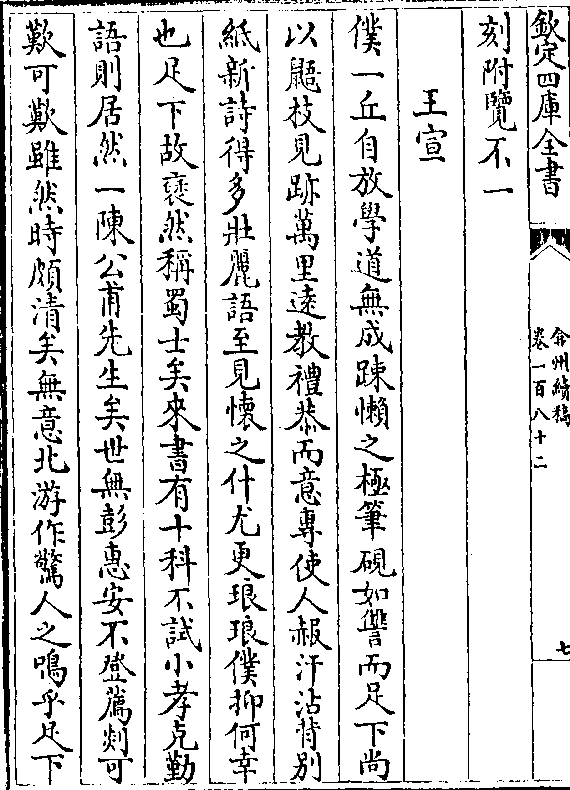 欽定四庫全書
弇州續稿
卷一百八十二
七
刻附覽不一
王宣
僕一丘自放學道無成踈懶之極筆硯如讐而足下尚
以鼯枝見跡萬里遠教禮恭而意專使人赧汗沾背别
紙新詩得多壯麗語至見懷之什尤更琅琅僕抑何幸
也足下故裒然稱蜀士矣來書有十科不試小孝克勤
語則居然一陳公甫先生矣世無彭惠安不登薦剡可
歎可歎雖然時頗清矣無意北游作驚人之鳴乎足下